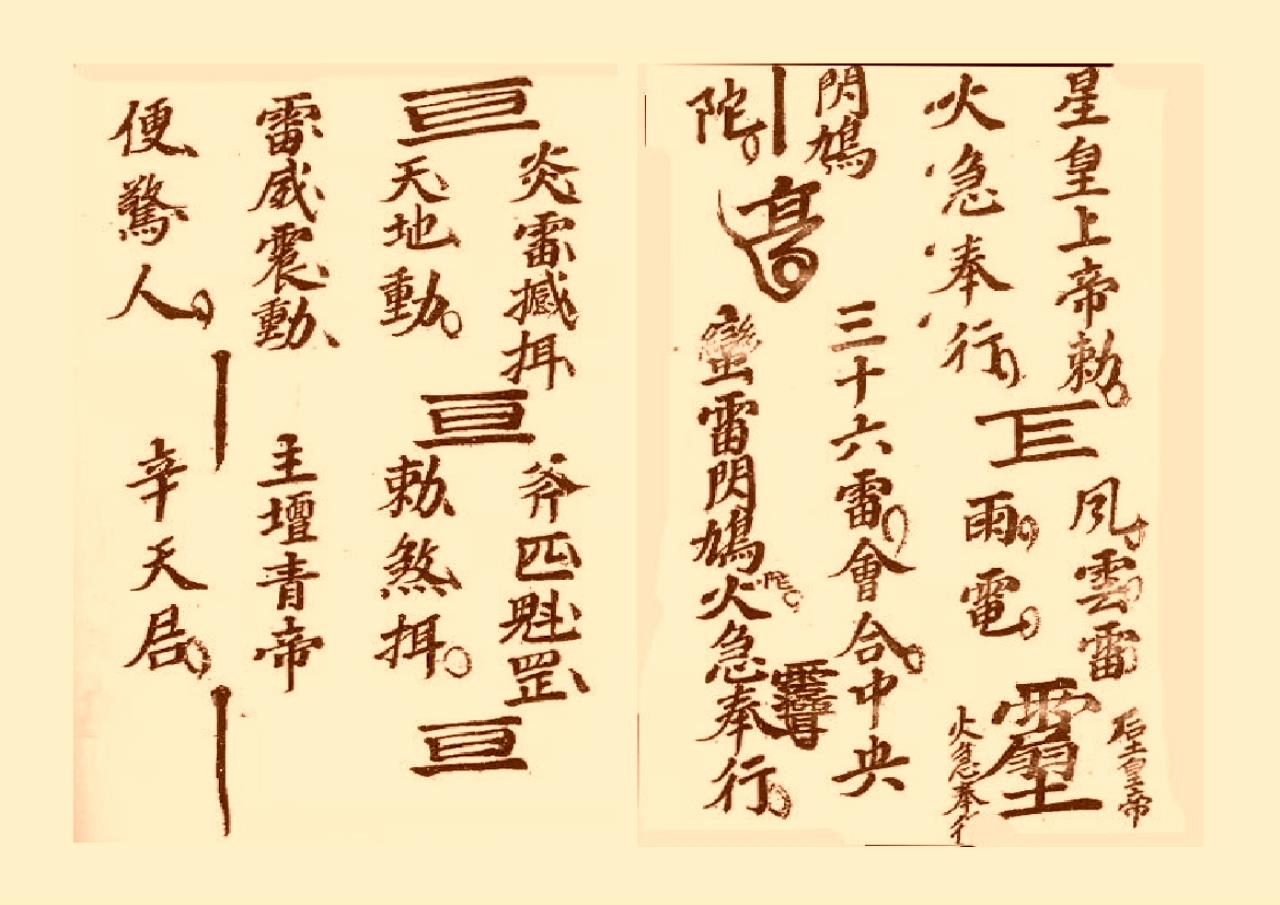 星皇上帝勅
火急奉行
風雲雷
雨電
后土皇帝
火急奉行
閃鳩
陀
三十六雷會合中央
蠻雷閃鳩火急奉行
陀
炎雷撼挕
天地動
斧匹魁罡
勅煞挕
雷威震動
便驚人
主壇青帝
辛天君